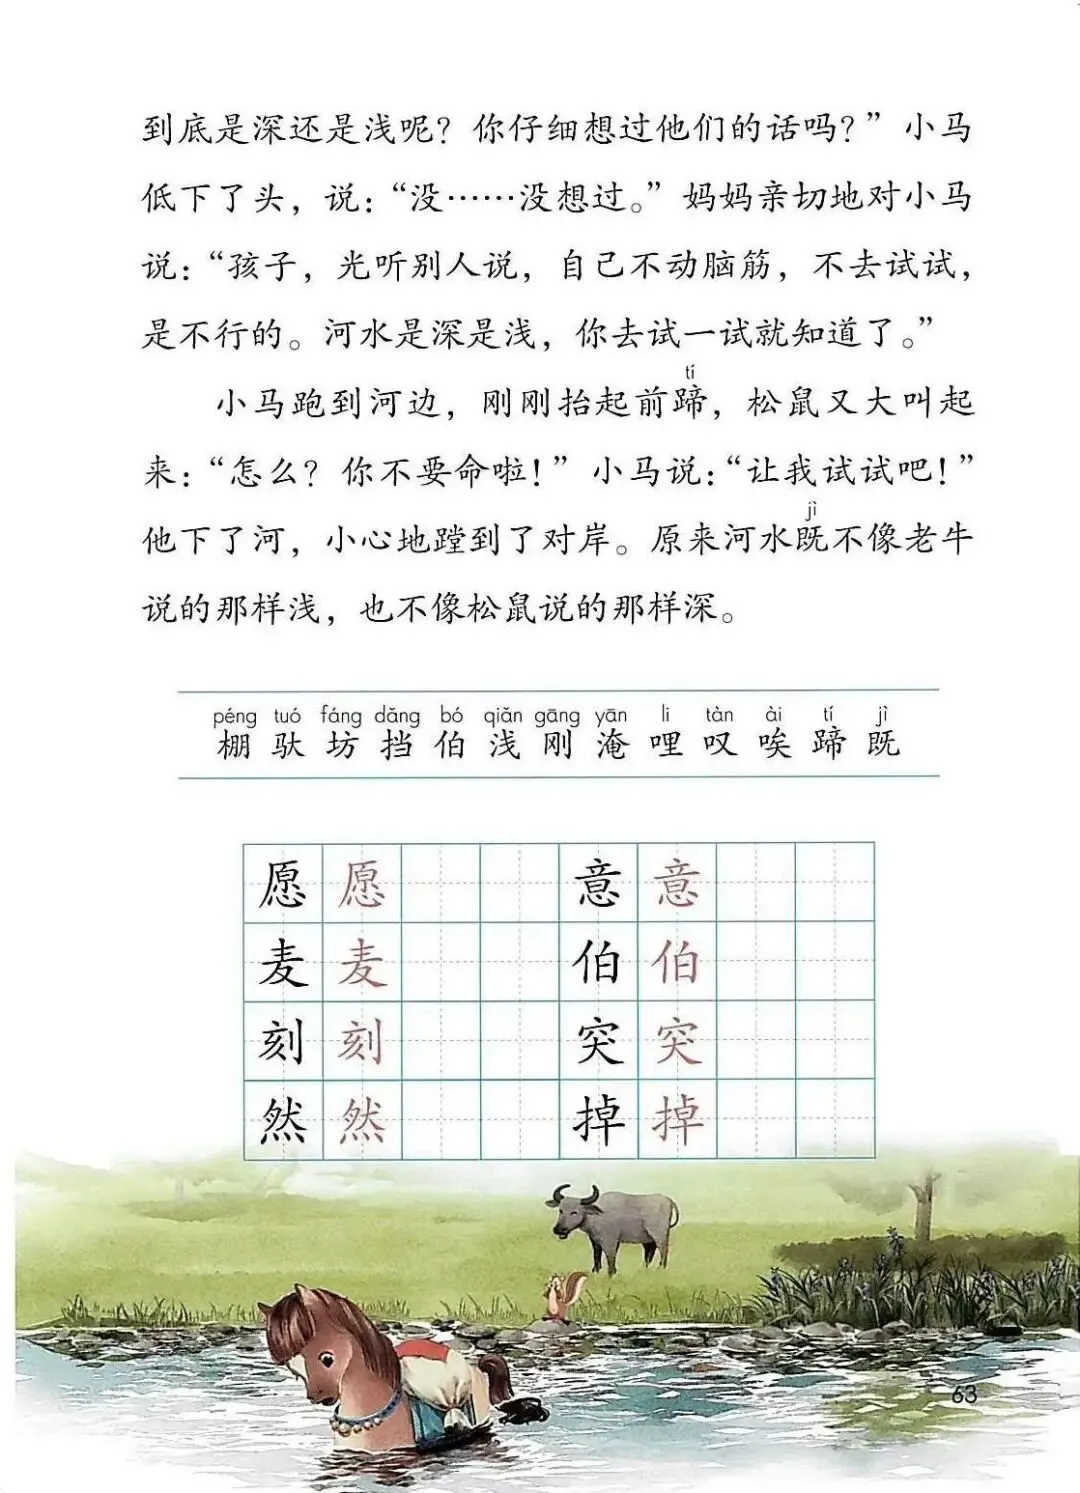 到底是深还是浅呢？你仔细想过他们的话吗？”小马
低下了头，说：“没……没想过。”妈妈亲切地对小马
说：“孩子，光听别人说，自己不动脑筋，不去试试，
是不行的。河水是深是浅，你去试一试就知道了。”
tí
小马跑到河边，刚刚抬起前蹄，松鼠又大叫起
来：“怎么？你不要命啦！”小马说：“让我试试吧！”
jì
他下了河，小心地蹚到了对岸。原来河水既不像老牛
说的那样浅，也不像松鼠说的那样深。
péng tuó fáng dǎng bó qiǎn gāng yān li tàn ài tí jì
棚 驮 坊 挡 伯 浅 刚 淹 哩 叹 唉 蹄 既
愿 愿 意 意
麦 麦 伯 伯
刻 刻 突 突
然 然 掉 掉
63